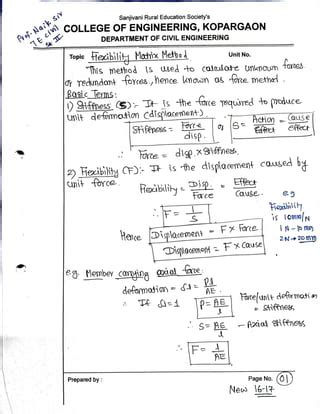 Prof. Naik. S.V
T E Civil
Sem II
Sanjivani Rural Education Society's
COLLEGE OF ENGINEERING, KOPARGAON
DEPARTMENT OF CIVIL ENGINEERING
Topic Flexibility Matrix Method Unit No.
"This method is used to calculate unknown forces
or redundant forces, hence known as force method.
Basic Terms:
1) Stiffness (S):- It is the force required to produce
unit deformation (displacement).
Stiffness = Force / disp. or S = Action / Effect = Cause / effect
∴ Force = disp × Stiffness.
2) Flexibility (F):- It is the displacement caused by
unit force.
Flexibility = Disp. / Force = Effect / Cause.
e.g
Flexibility
is 10mm/N
1N - 10 mm
2N → 20 mm
∴ F = 1/S
Hence Displacement = F × Force
Displacement = F × Cause
e.g. Member carrying axial force:
deformation = δl = Pl/AE
∴ If δl=1 P = AE/l
Force/unit deformation
= Stiffness
∴ S = AE/l - Axial Stiffness
∴ F = l/AE
Prepared by : Page No. 01
New 16-17